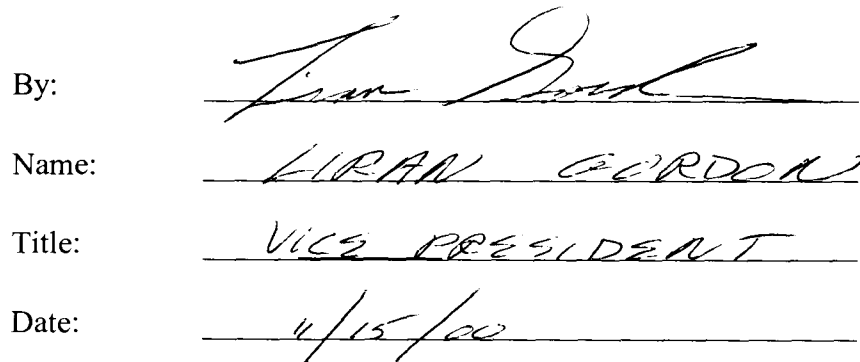 By: Liran Gordon
Name: LIRAN GORDON
Title: VICE PRESIDENT
Date: 11/15/00